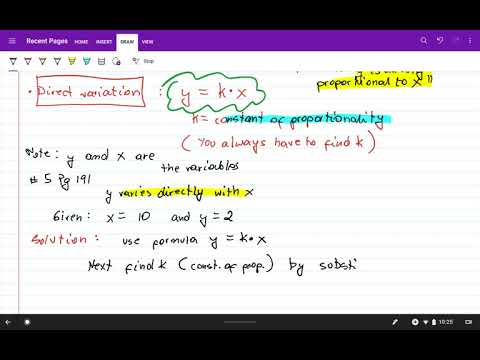 Recent Pages
HOME INSERT DRAW VIEW
Study
proportional to x "
• Direct variation : y = k·x
k = constant of proportionality
(You always have to find k)
Note: y and x are the variables
# 5 Pg 191
y varies directly with x
Given: x = 10 and y = 2
Solution: use formula y = k·x
Next find k (const. of prop.) by substi
10:25